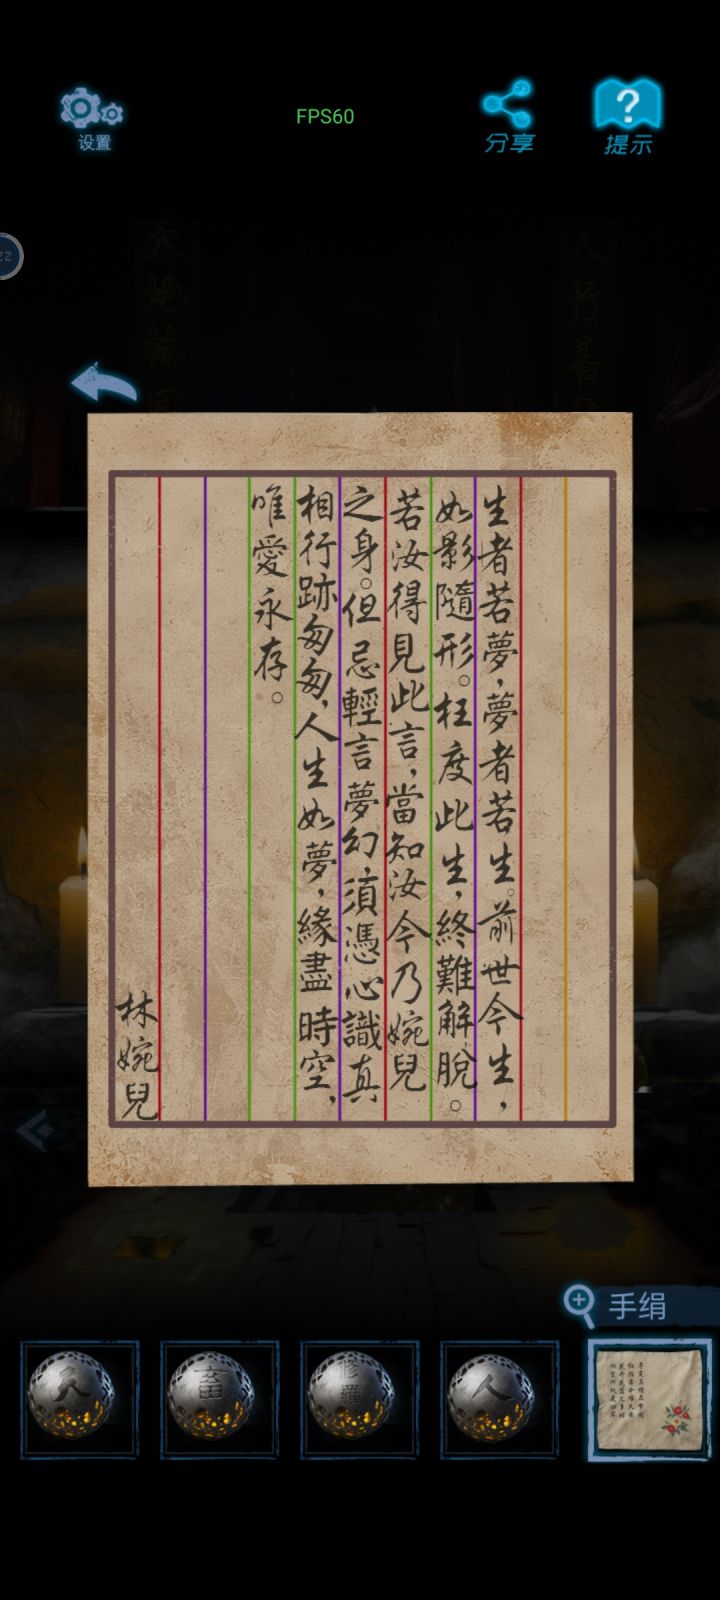 设置
FPS60
分享
提示
生者若夢，夢者若生。前世今生，
如影隨形。枉度此生，終難解脫。
若汝得見此言，當知汝今乃婉兒
之身。但忌輕言夢幻，須憑心識真
相行跡匆匆，人生如夢，緣盡時空，
唯愛永存。
林婉兒
手绢
畜
修羅
人